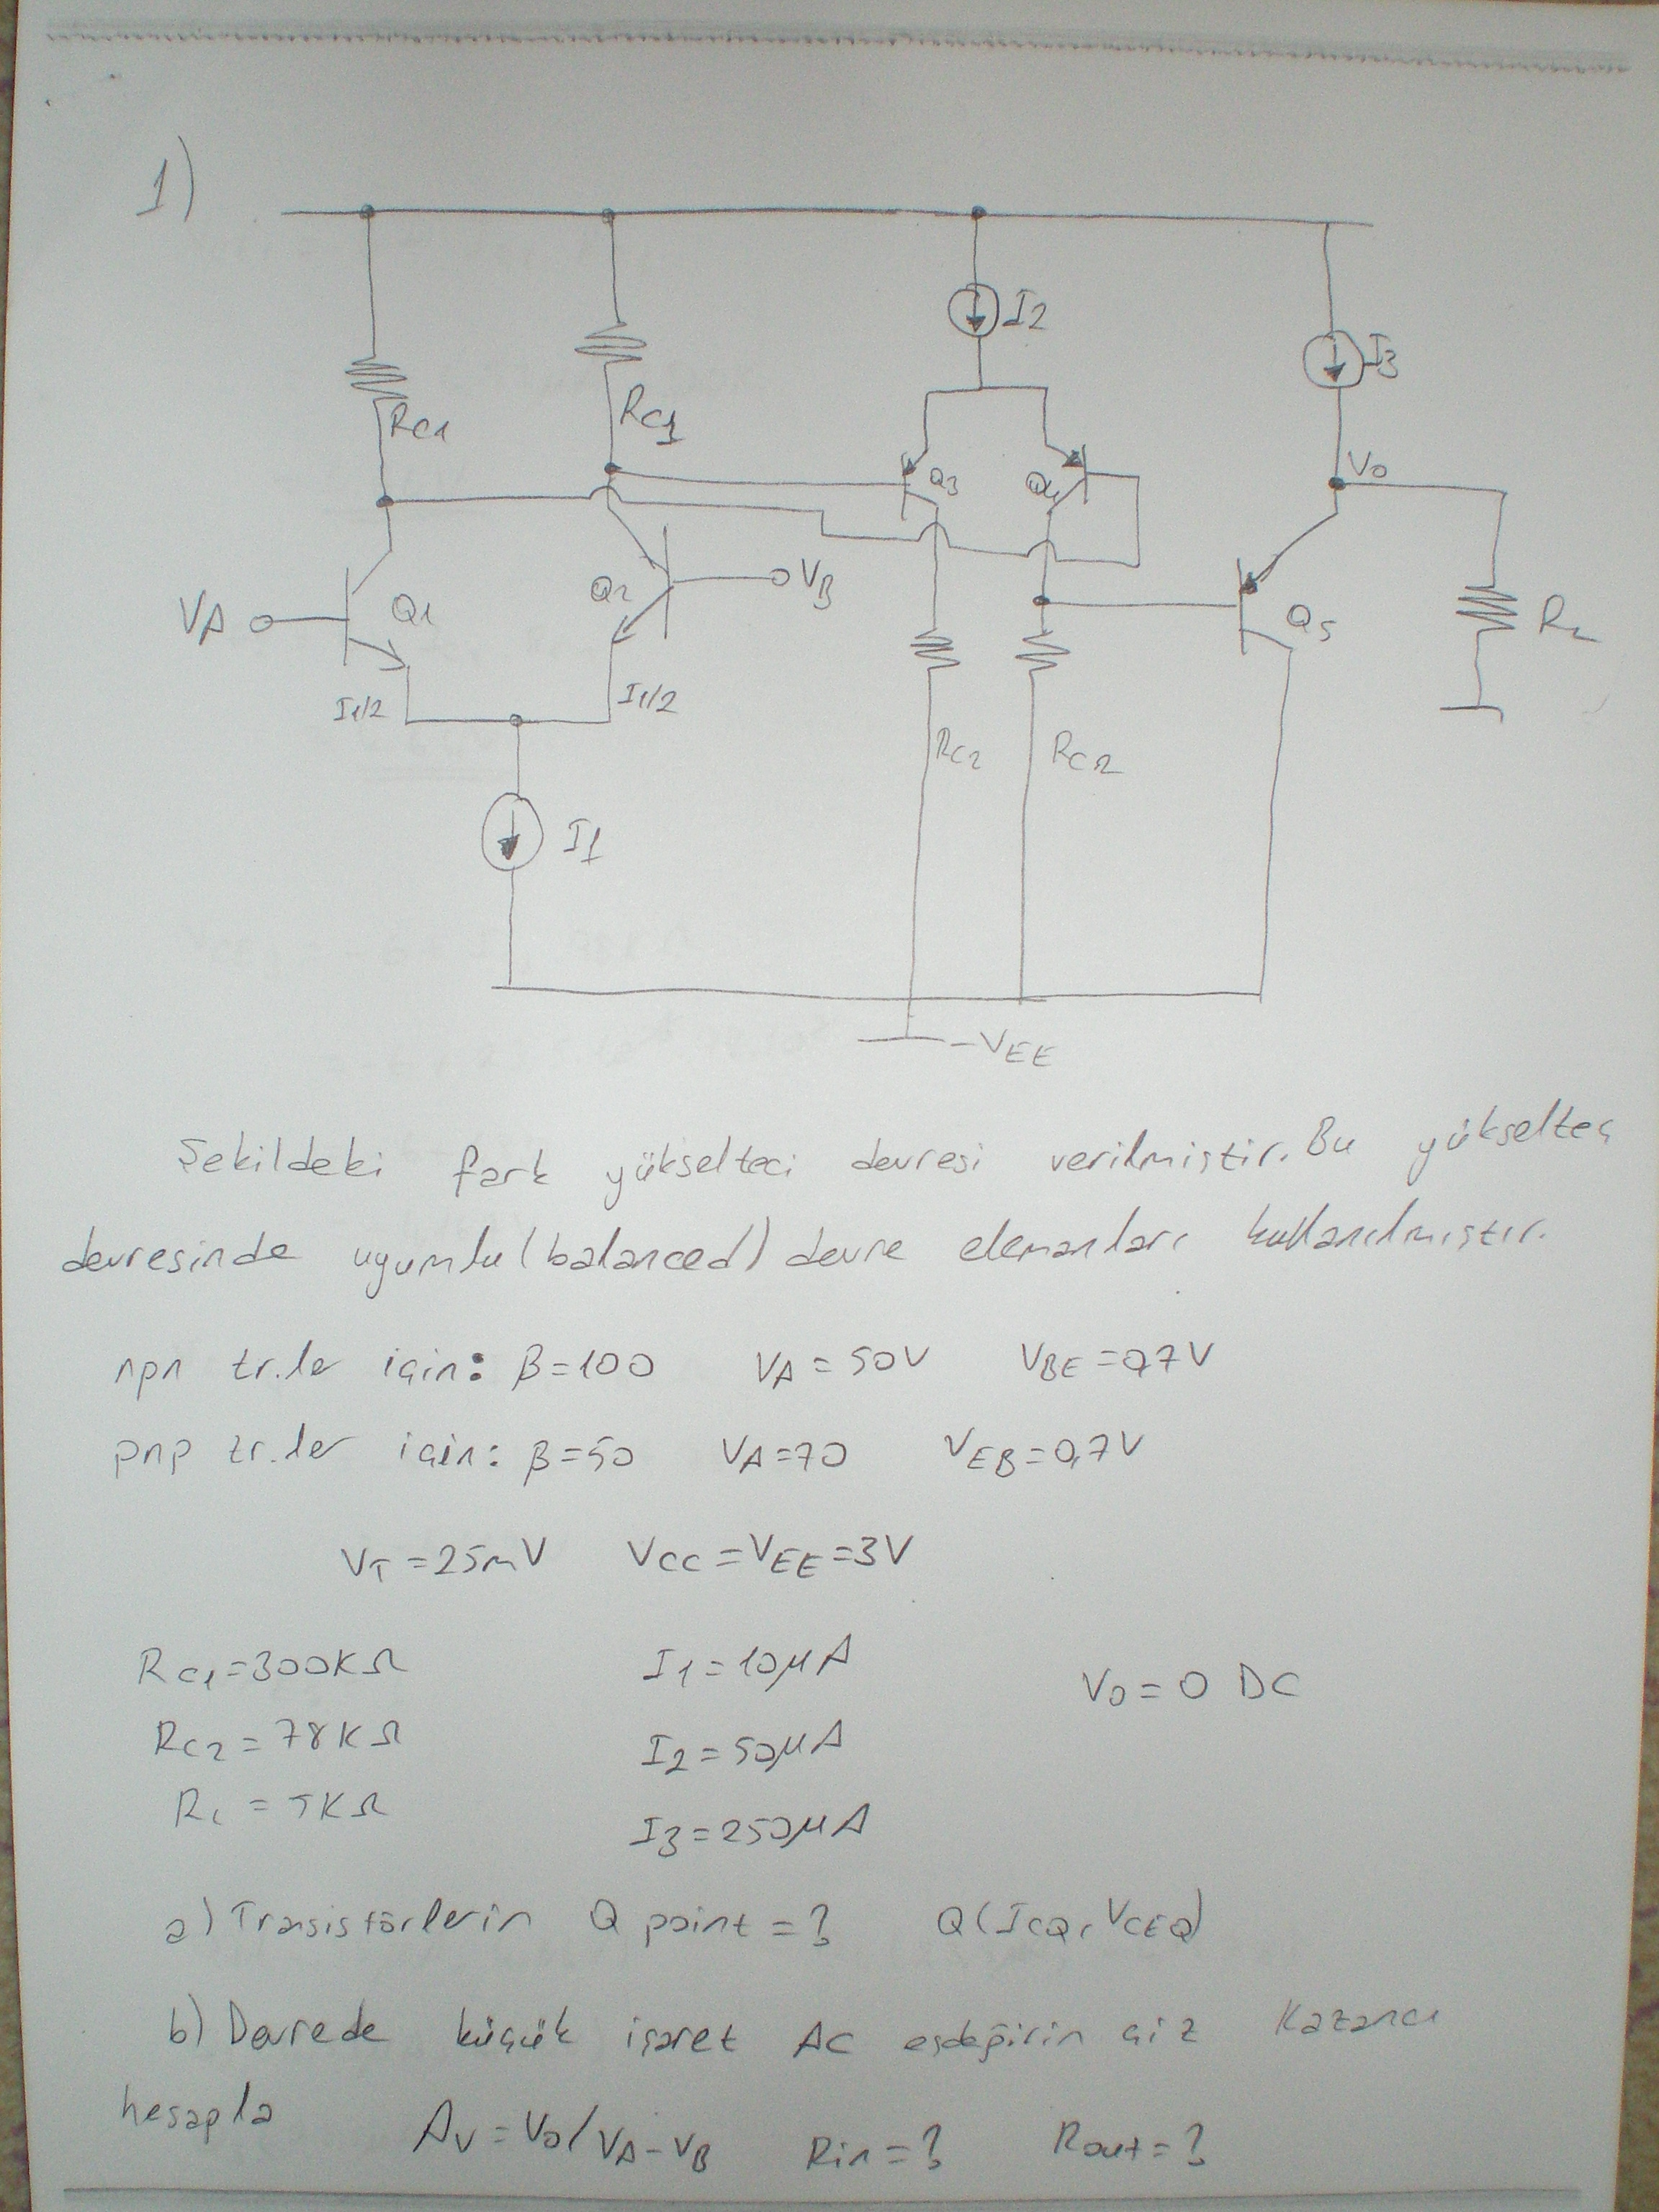 1)
I2
I3
RC1
RC1
Vo
Q3
Q4
VA
Q1
Q2
VB
Q5
RL
I1/2
I1/2
RC2
RC2
I1
-VEE
Şekildeki fark yükselteci devresi verilmiştir. Bu yükselteç
devresinde uyumlu (balanced) devre elemanları kullanılmıştır.
npn tr.ler için: β=100 VA=50V VBE=0,7V
pnp tr.ler için: β=50 VA=70 VEB=0,7V
VT=25mV VCC=VEE=3V
RC1=300KΩ I1=10μA
V0=0 DC
RC2=78KΩ I2=50μA
RL=5KΩ I3=250μA
a) Transistörlerin Q point=? Q(ICQ, VCEQ)
b) Devrede küçük işaret AC eşdeğirin çiz Kazancı
hesapla AV=Vo/VA-VB Rin=? Rout=?